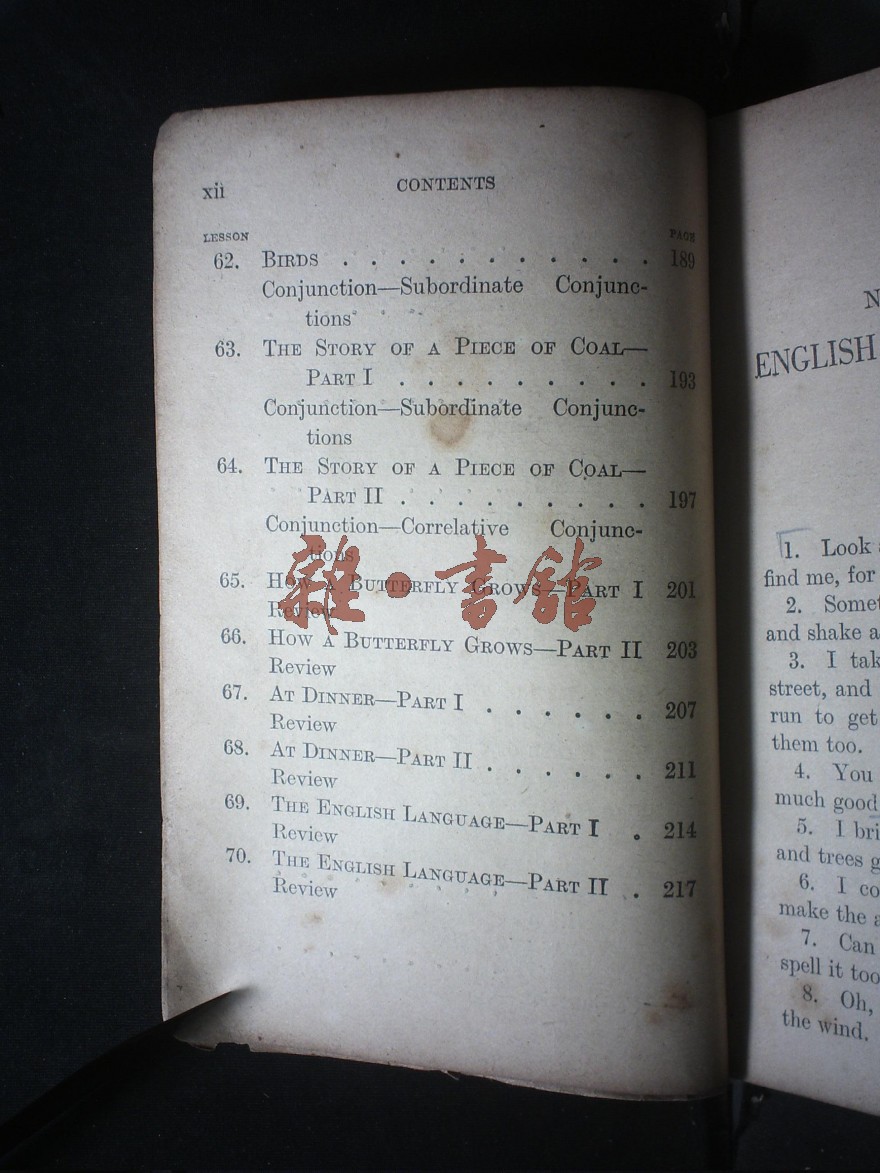 xii CONTENTS
LESSON PAGE
62. BIRDS . . . . . . . . . . . 189
Conjunction—Subordinate Conjunc-
tions
63. THE STORY OF A PIECE OF COAL—
PART I . . . . . . . . . 193
Conjunction—Subordinate Conjunc-
tions
64. THE STORY OF A PIECE OF COAL—
PART II . . . . . . . . . 197
Conjunction—Correlative Conjunc-
tions
65. HOW A BUTTERFLY GROWS—PART I 201
Review
66. HOW A BUTTERFLY GROWS—PART II 203
Review
67. AT DINNER—PART I . . . . . . 207
Review
68. AT DINNER—PART II . . . . . . 211
Review
69. THE ENGLISH LANGUAGE—PART I . 214
Review
70. THE ENGLISH LANGUAGE—PART II . 217
Review
雜·書館
ENGLISH
1. Look
find me, for
2.
and shake
3. I
street, and
run to get
them too.
4. You
much good
5. I
and trees
6. I
make the
7. Can
spell it too
8. Oh,
the wind.